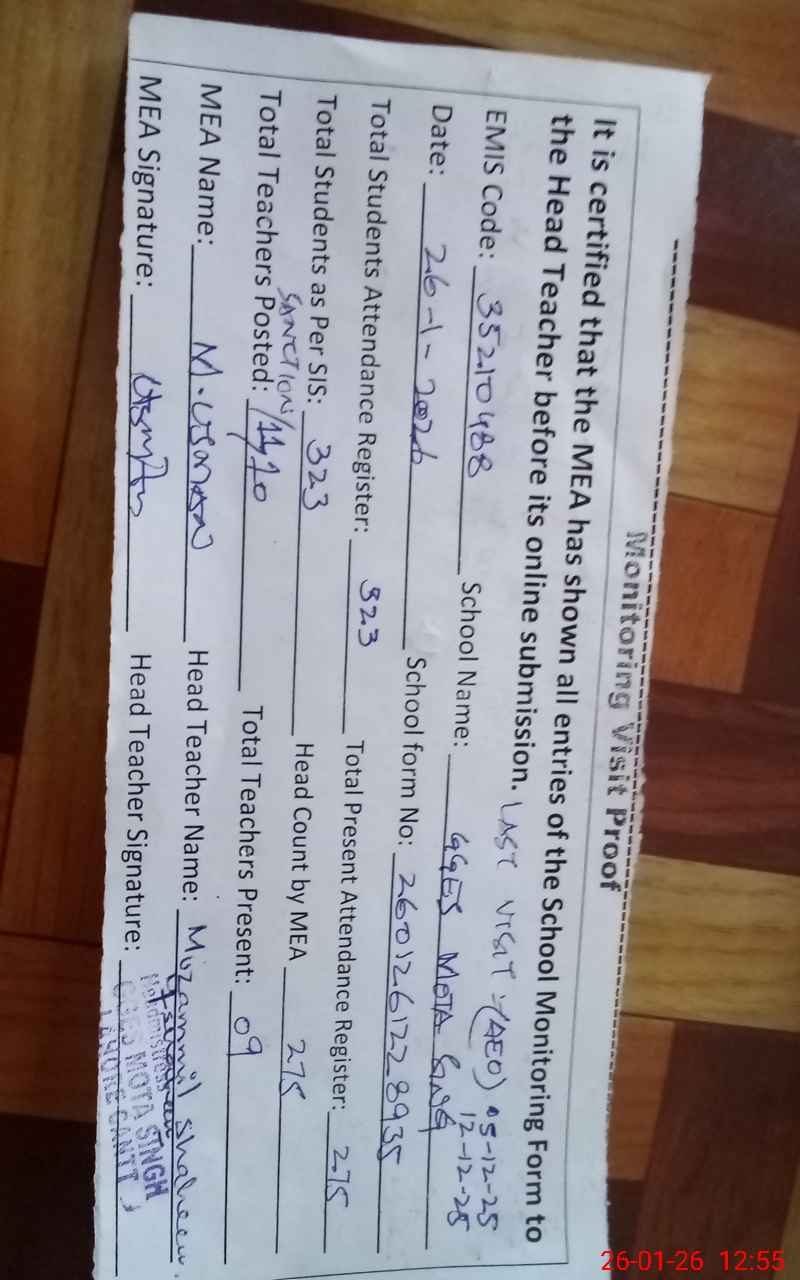 Monitoring Visit Proof
It is certified that the MEA has shown all entries of the School Monitoring Form to
the Head Teacher before its online submission. LAST VISIT :- (AEO) 05-12-25
12-12-25
EMIS Code: 35210488 School Name: GGES MOTA Singh
Date: 26-1-2026 School form No: 260126122 8935
Total Students Attendance Register: 323 Total Present Attendance Register: 275
Total Students as Per SIS: 323 Head Count by MEA 275
SANCTION
Total Teachers Posted: /11/10 Total Teachers Present: 09
MEA Name: M. USMAN Head Teacher Name: Mozammil Shaheen.
MEA Signature: Usman Head Teacher Signature:
Headmistress
GGES MOTA SINGH
LAHORE CANTT
26-01-26 12:55